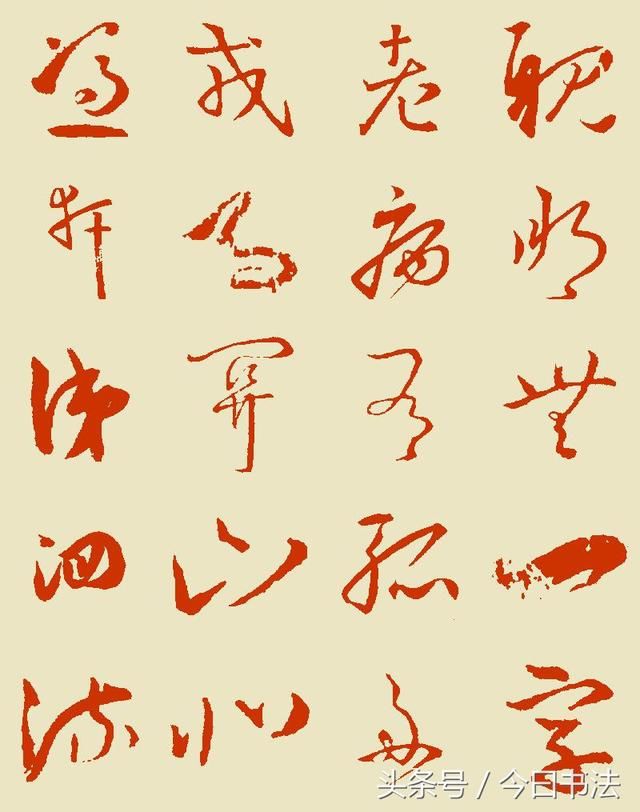 親朋無一字
老病有孤舟
戎馬關山北
憑軒涕泗流
头条号 / 今日书法